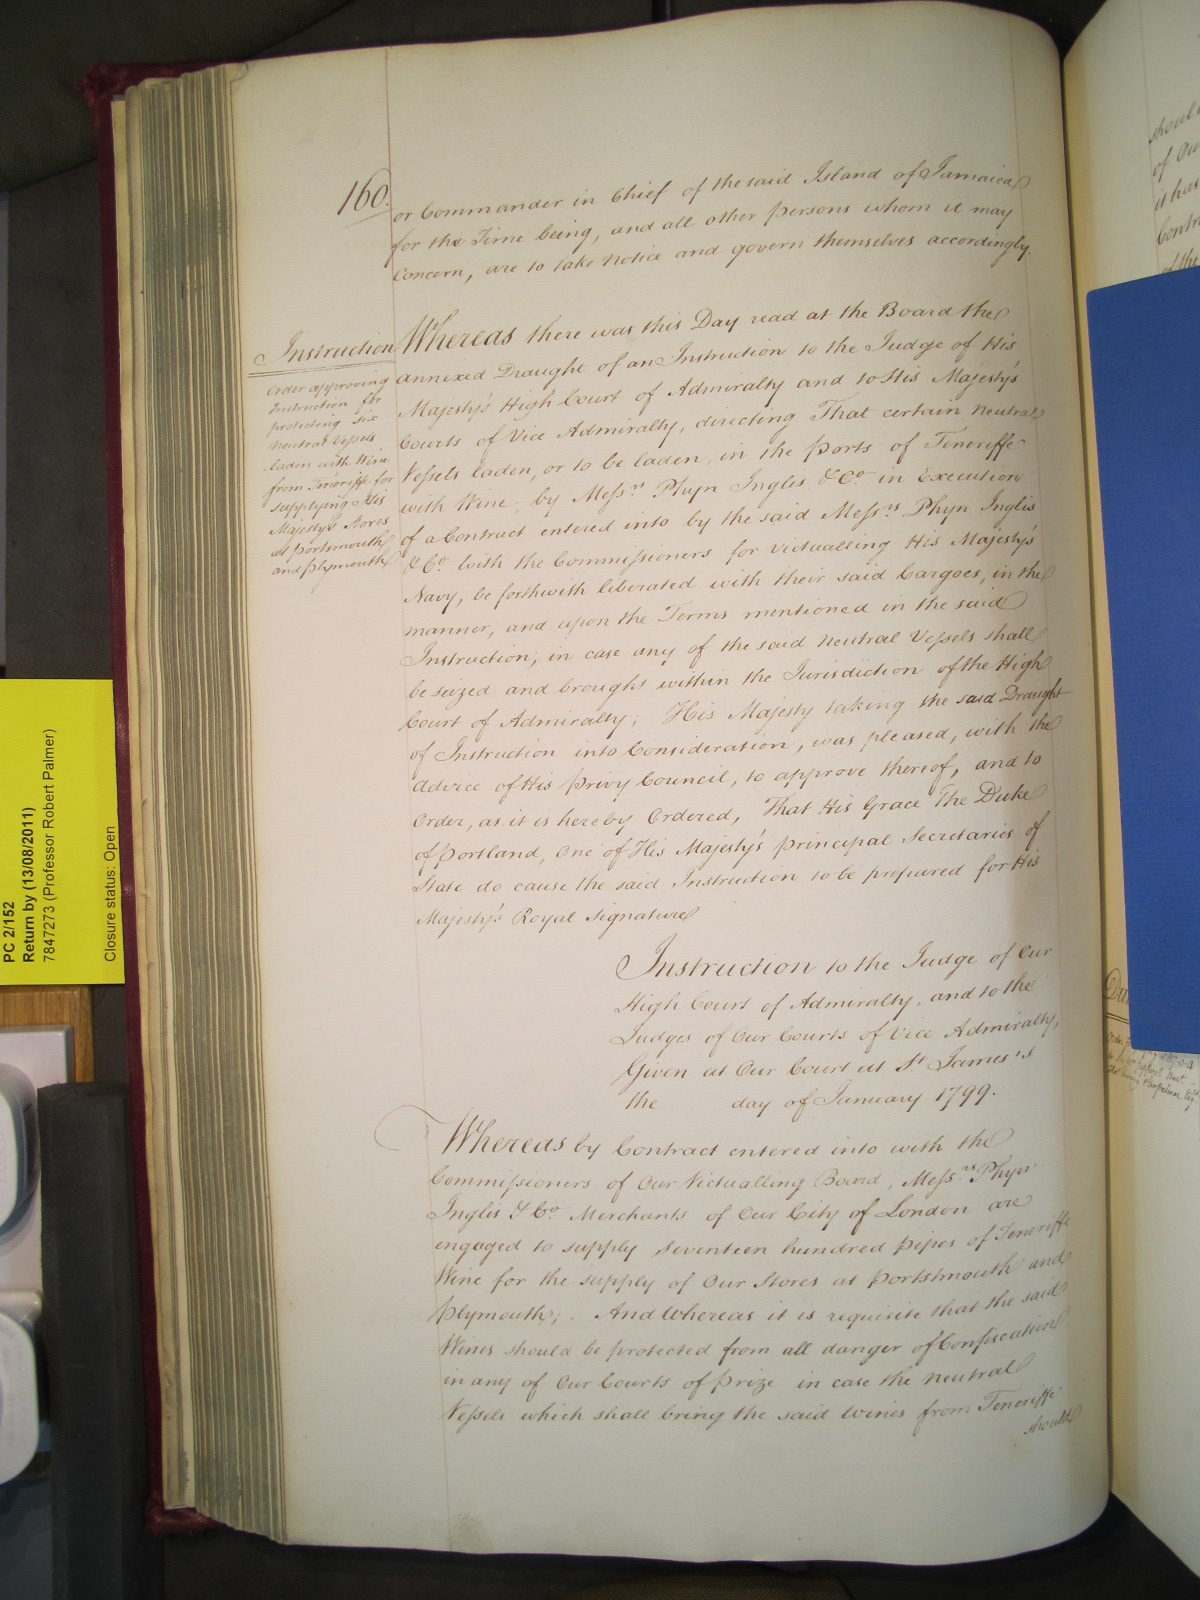 160.
or Commander in Chief of the said Island of Jamaica
for the Time being, and all other persons whom it may
Concern, are to take notice and govern themselves accordingly.
Instruction
Order approving
Instruction for
protecting six
neutral Vessels
laden with Wine
from Teneriffe for
supplying His
Majesty's Stores
at Portsmouth
and Plymouth
Whereas there was this Day read at the Board the
annexed Draught of an Instruction to the Judge of His
Majesty's High Court of Admiralty and to His Majesty's
Courts of Vice Admiralty, directing That certain neutral
Vessels laden, or to be laden, in the Ports of Teneriffe
with Wine, by Messrs Phyn Inglis & Co in Execution
of a Contract entered into by the said Messrs Phyn Inglis
& Co. with the Commissioners for Victualling His Majesty's
Navy, be forthwith liberated with their said Cargoes, in the
manner, and upon the Terms mentioned in the said
Instruction, in case any of the said neutral Vessels shall
be seized and brought within the Jurisdiction of the High
Court of Admiralty; His Majesty taking the said Draught
of Instruction into Consideration, was pleased, with the
Advice of His Privy Council, to approve thereof, and to
Order, as it is hereby Ordered, That His Grace The Duke
of Portland, One of His Majesty's principal Secretaries of
State do cause the said Instruction to be prepared for His
Majesty's Royal Signature
Instruction to the Judge of Our
High Court of Admiralty, and to the
Judges of Our Courts of Vice Admiralty,
Given at Our Court at St James's
the day of January 1799.
Whereas by Contract entered into with the
Commissioners of Our Victualling Board, Messrs Phyn
Inglis & Co. Merchants of Our City of London are
engaged to supply Seventeen hundred Pipes of Teneriffe
Wine for the supply of Our Stores at Portstmouth and
Plymouth; And Whereas it is requisite that the said
Wines should be protected from all danger of Confiscation
in any of Our Courts of Prize in case the neutral
Vessels which shall bring the said Wines from Teneriffe
should
PC 2/152
Return by (13/08/2011)
7847273 (Professor Robert Palmer)
Closure status: Open
should
of Our
it has
Contra
of the